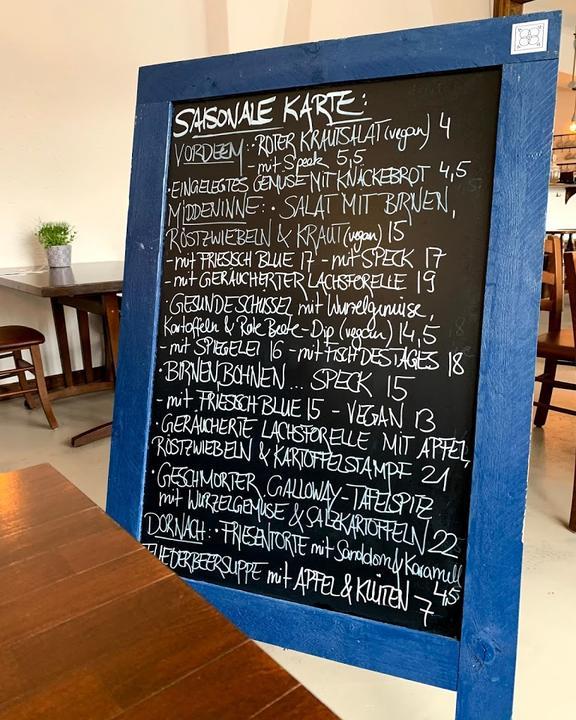 SAISONALE KARTE:
VORDEEM: · ROTER KRAUTSALAT (vegan) 4
- mit Speck 5,5
· EINGELEGTES GEMÜSE MIT KNÄCKEBROT 4,5
MIDDENINNE: · SALAT MIT BIRNEN,
RÖSTZWIEBELN & KRAUT (vegan) 15
- mit FRIESISCH BLUE 17 - mit SPECK 17
- mit GERÄUCHERTER LACHSFORELLE 19
· GESUNDE SCHÜSSEL mit Wurzelgemüse,
Kartoffeln & Rote Beete-Dip (vegan) 14,5
- mit SPIEGELEI 16 - mit FISCH DES TAGES 18
· BIRNEN BOHNEN ... SPECK 15
- mit FRIESISCH BLUE 15 - VEGAN 13
· GERÄUCHERTE LACHSFORELLE MIT APFEL,
RÖSTZWIEBELN & KARTOFFELSTAMPF 21
· GESCHMORTER GALLOWAY-TAFELSPITZ
mit WURZELGEMÜSE & SALZKARTOFFELN 22
DORNACH: · FRIESENTORTE mit Sanddorn & Karamell
4,5
FLIEDERBEERSUPPE mit APFEL & KLÜTEN 7